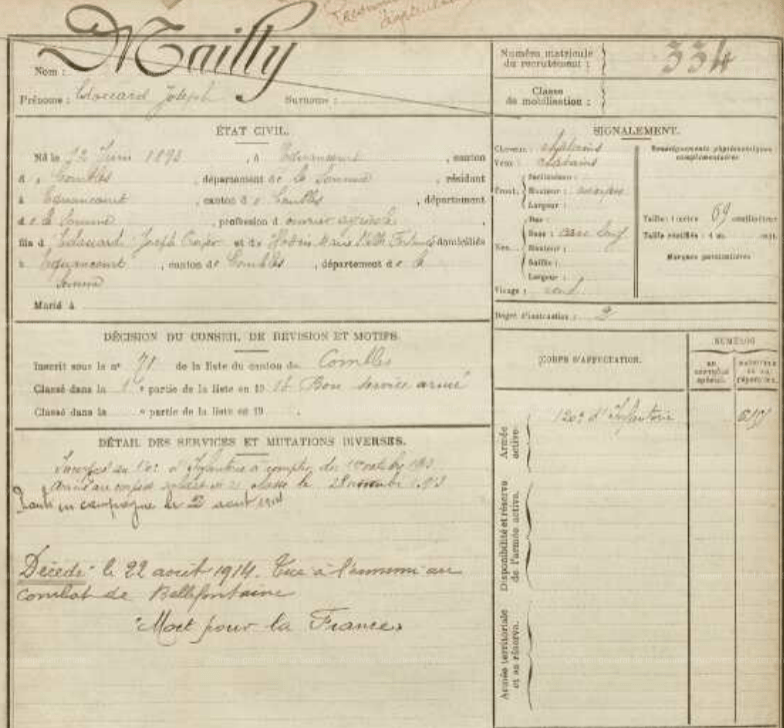 Mailly
Nom :
Prénoms : Edouard Joseph Surnoms :
Numéro matricule du recrutement : 334
Classe de mobilisation :
ÉTAT CIVIL.
Né le 12 Juin 1893, à Equancourt, canton
de Combles, département de la Somme, résidant
à Equancourt, canton de Combles, département
de la Somme, profession d ouvrier agricole,
fils d Edouard Joseph et de Marie domiciliés
à Equancourt, canton de Combles, département de la
Somme
Marié à
SIGNALEMENT.
Cheveux : châtains
Yeux : châtains
Front. Inclinaison :
Hauteur : moyen
Largeur :
Nez. Dos :
Base :
Hauteur :
Saillie :
Largeur :
Visage : rond
Renseignements physionomiques complémentaires
Taille : 1 mètre 69 centimètres
Taille rectifiée : 1 m. cent.
Marques particulières
Degré d'instruction : 2
DÉCISION DU CONSEIL DE REVISION ET MOTIFS.
Inscrit sous le n° 71 de la liste du canton de Combles
Classé dans la 1e partie de la liste en 19 Bon service armé
Classé dans la e partie de la liste en 19 .
DÉTAIL DES SERVICES ET MUTATIONS DIVERSES.
d'Infanterie à compter du
Arrivé au corps et soldat de 2e classe le 28 novembre 1913
Parti en campagne le 2 aout 1914
Décédé le 22 août 1914. Tué à l'ennemi au
combat de Bellefontaine
"Mort pour la France"
CORPS D'AFFECTATION.
NUMÉROS
au contrôle spécial.
matricule ou au répertoire.
Armée active.
120e d'Infanterie
Disponibilité et réserve de l'armée active.
Armée territoriale et sa réserve.